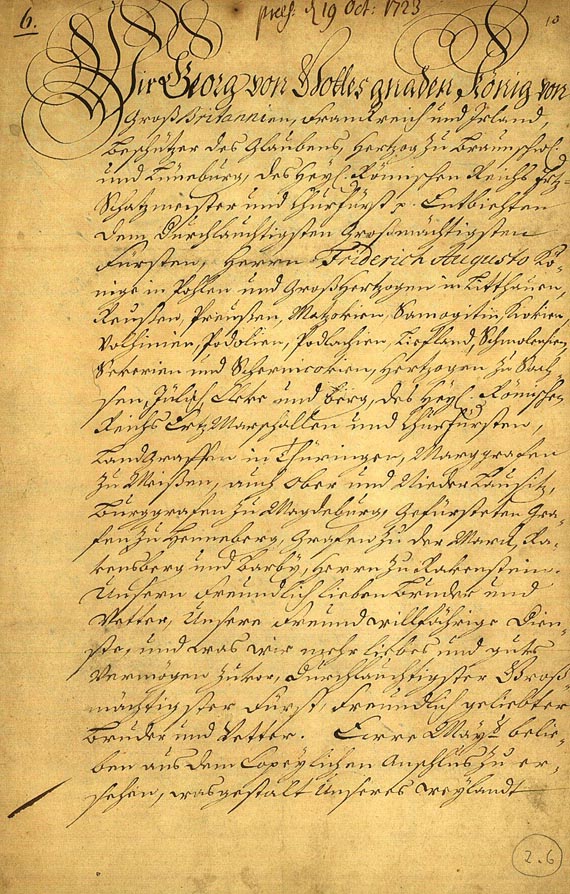 6.
præs. d 19 Oct: 1723
10
Wir Georg von Gottes gnaden, König von
Groß Britannien, Franckreich und Irland,
Beschützer des Glaubens, Hertzog zu Braunschw:
und Lüneburg, des Heyl. Römischen Reichs Ertz-
Schatzmeister und Churfürst p. Entbiethen
dem Durchlauchtigsten Großmächtigsten
Fürsten, Herrn Friderich Augusto Kö-
nige in Pohlen und Großhertzogen in Litthauen,
Reußen, Preußen, Mazovien, Samogitien, Kiovien,
Volhinien, Podolien, Podlachien, Liefland, Schmolensko,
Severien und Schernicovien, Hertzogen zu Sach-
sen, Jülich Cleve und Berg, des Heyl. Römischen
Reichs Ertz Marschallen und Churfürsten,
Landgraffen in Thüringen, Marggrafen
zu Meißen, auch Ober und Nieder Lausitz,
Burggrafen zu Magdeburg, Gefürsteten Gra-
fen zu Henneberg, Grafen zu der Marck, Ra-
vensberg und Barby, Herrn zu Ravenstein.
Unsern freundlich lieben Bruder und
Vetter, Unsere freundwillfährige Dien-
ste, und was wir mehr liebes und guts
Vermögen zuvor, Durchlauchtigster Groß
mächtigster Fürst, freundlich geliebter
Bruder und Vetter. Eure Mayt belie-
ben aus dem Copeylichen Anschlus zu er-
sehen, was gestalt Unseres weylandt
2.6